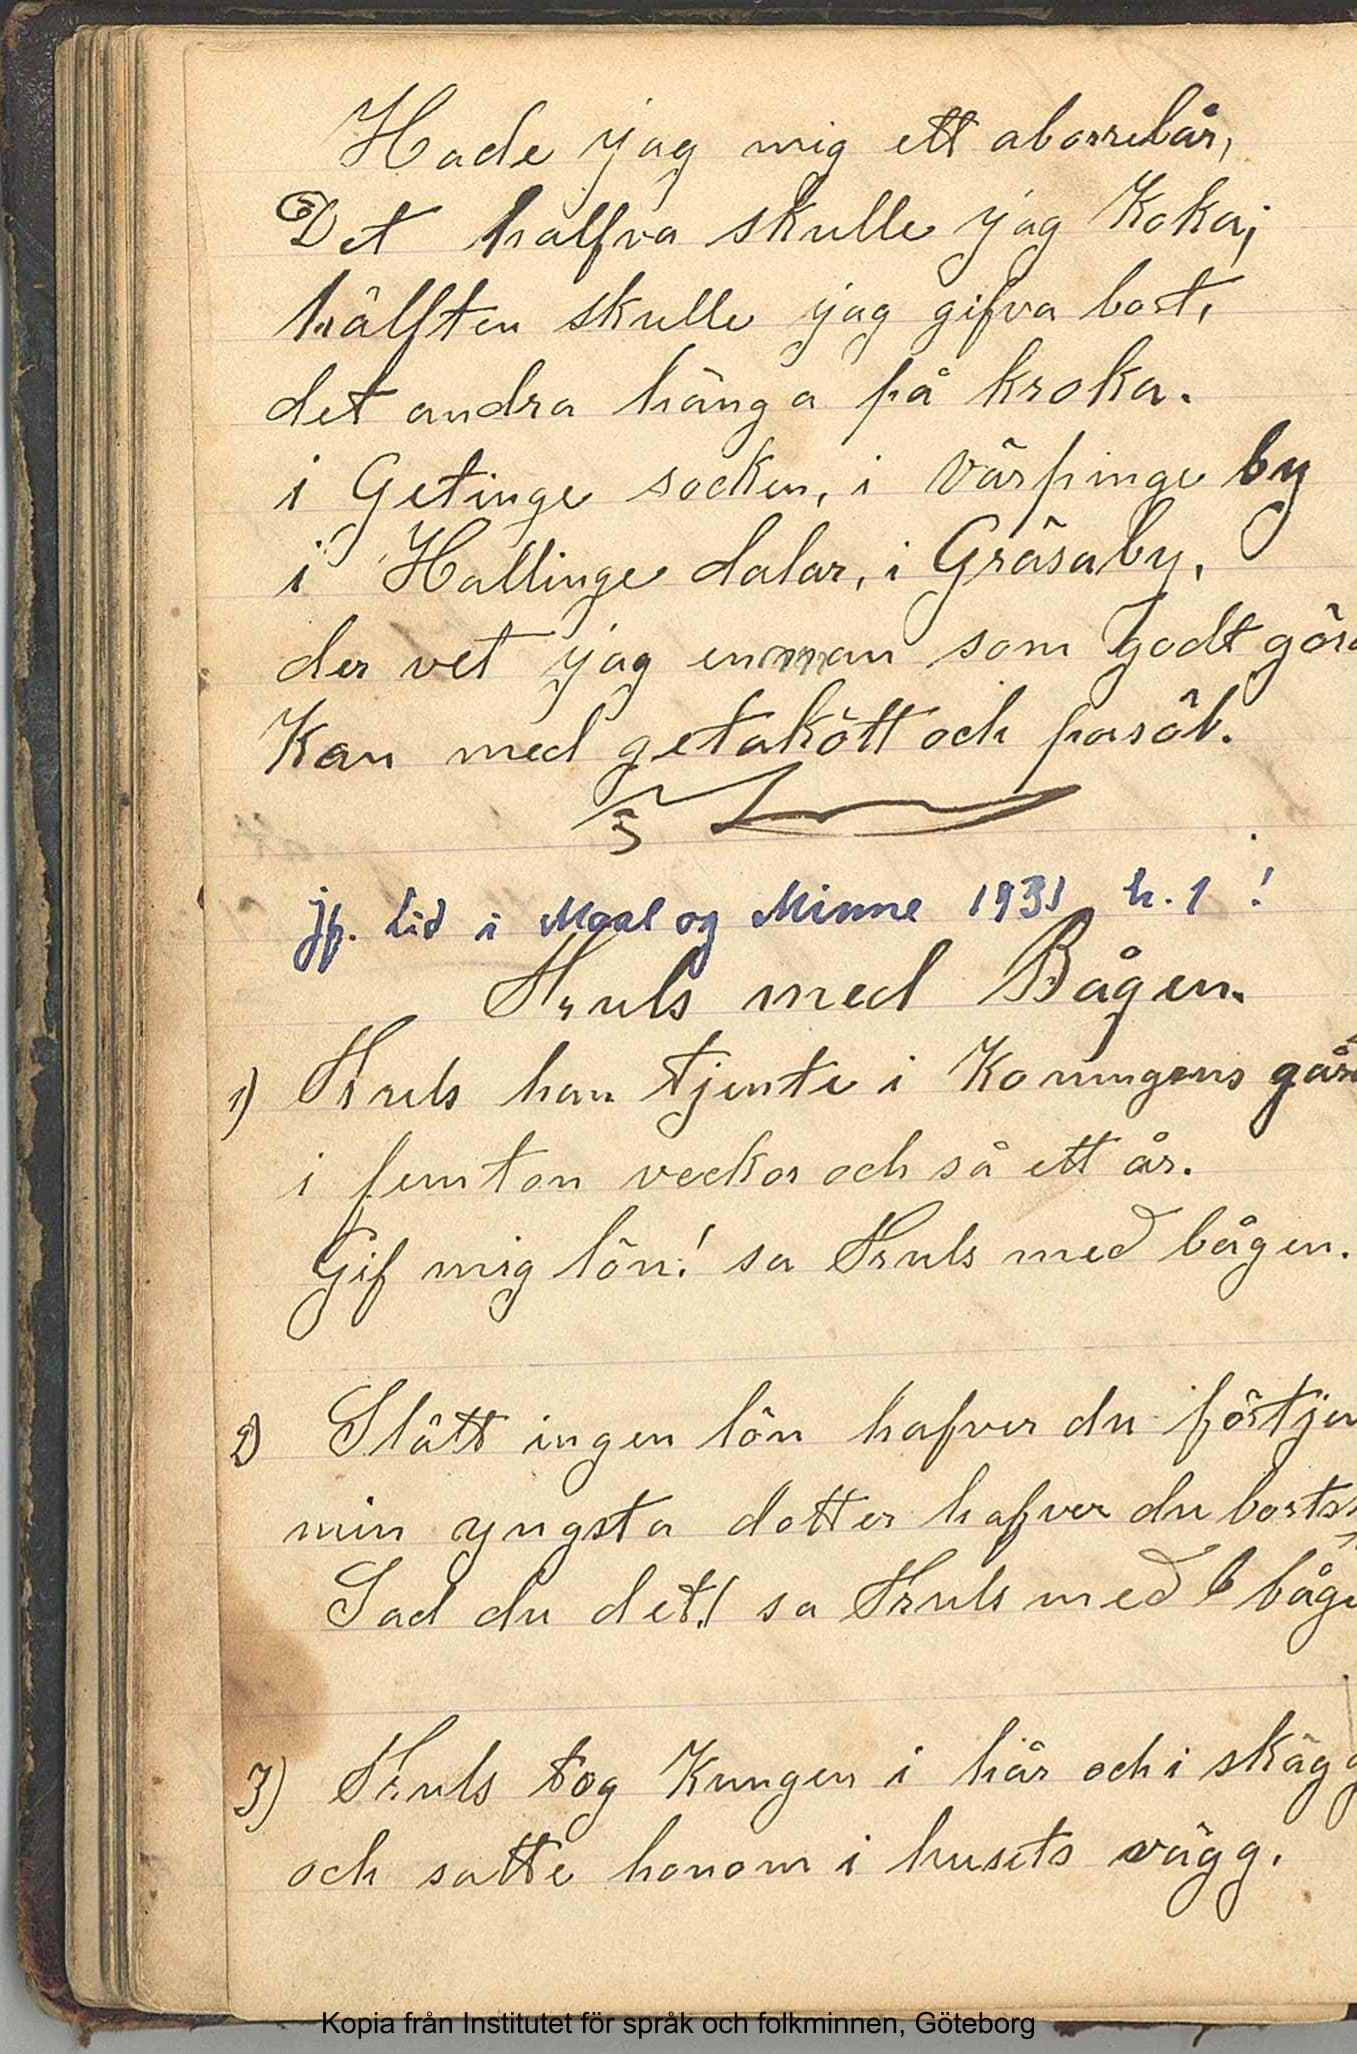 Hade jag mig ett aborrelår,
Det halfva skulle jag Koka;
hälften skulle jag gifva bort,
det andra hänga på kroka.
i Getinge socken, i Värpinge by
i Hallinge dalar, i Gräsaby,
der vet jag en man som godt göra
Kan med getakött och
jfr. Lid i Maal og Minne 1931 h. 1 !
Truls med Bågen.
1) Truls han tjente i Konungens gård
i femton veckor och så ett år.
Gif mig lön! sa Truls med bågen.
2) Slätt ingen lön hafver du förtjen
min yngsta dotter hafver du borts
Sad du det! sa Truls med b båge
3) Truls tog Kungen i hår och i skägg
och satte honom i husets vägg.
Kopia från Institutet för språk och folkminnen, Göteborg